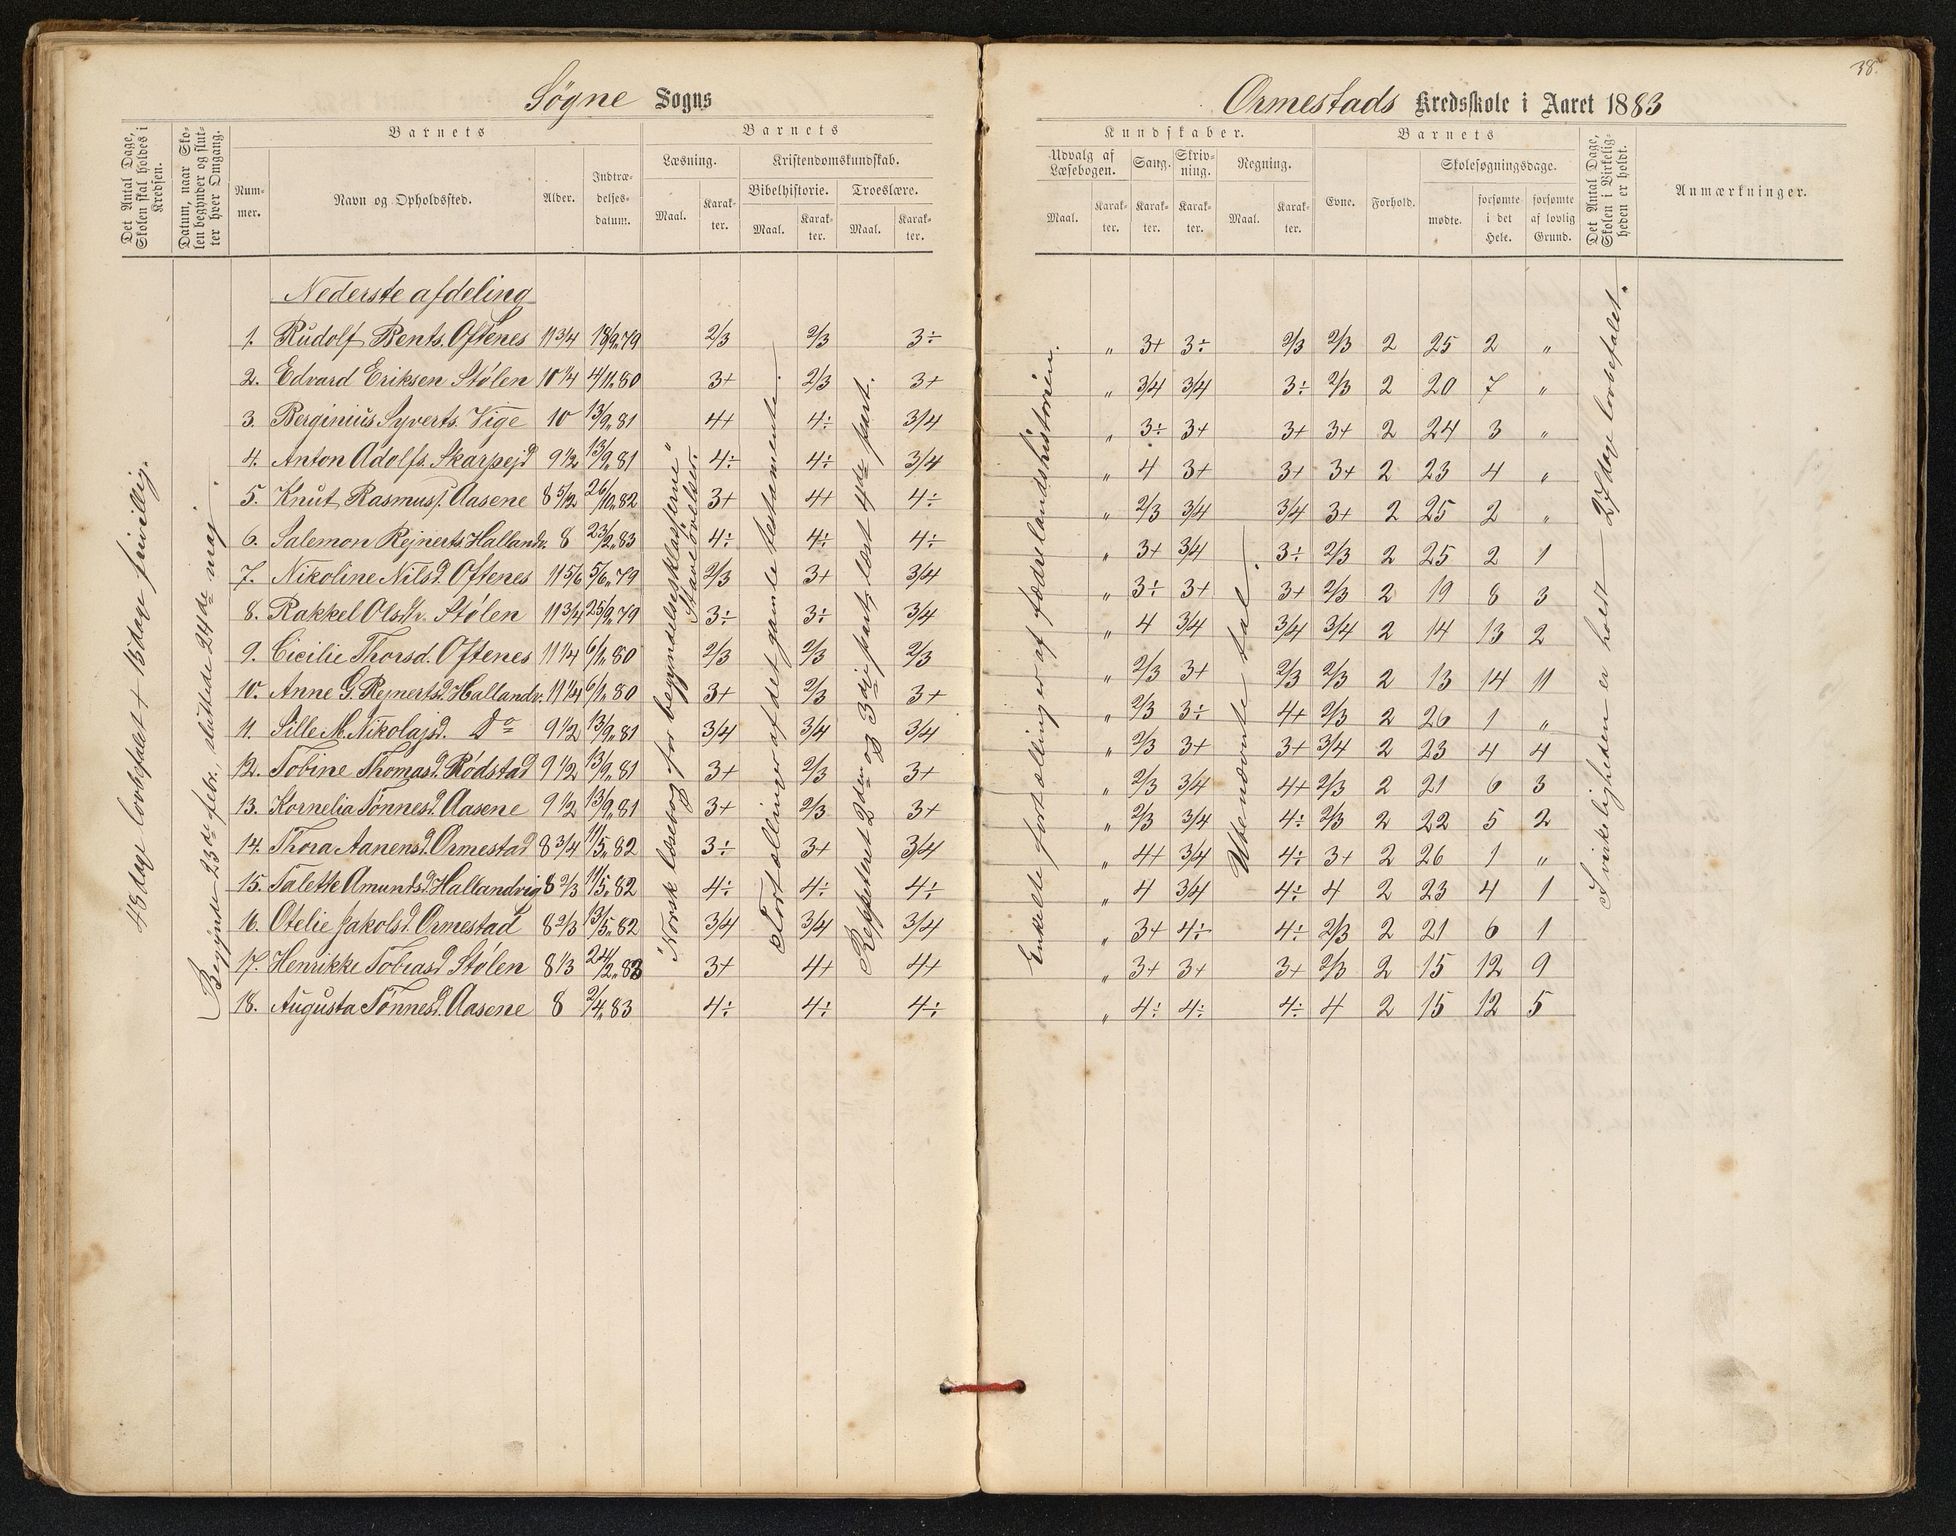 38.
Søgne Sogns
Ormestads Kredsskole i Aaret 1883
Det Antal Dage, Skolen skal holdes i Kredsen.
Datum, naar Skolen begynder og slutter hver Omgang.
Barnets
Nummer.
Navn og Opholdssted.
Alder.
Indtrædelsesdatum.
Barnets
Læsning.
Maal.
Karakter.
Kristendomskundskab.
Bibelhistorie.
Maal.
Karakter.
Troeslære.
Maal.
Karakter.
Kundskaber.
Udvalg af Læsebogen.
Maal.
Karakter.
Sang.
Karakter.
Skrivning.
Karakter.
Regning.
Maal.
Karakter.
Barnets
Evne.
Forhold.
Skolesøgningsdage.
mødte.
forsømte i det Hele.
forsømte af lovlig Grund.
Det Antal Dage, Skolen i Virkeligheden er holdt.
Anmærkninger.
45 dage lovbefalet + 15 dage frivillig.
Begyndte 23de febr., sluttede 24de maj.
"Norsk læsebog for begyndelsesklasserne"
Staveøvelser.
Fortællinger af det gamle testamente.
Reppeteret 2den og 3die part, lært 4de part.
Enkelte fortællinger af fædrelandshistorien.
Ubenævnte tal.
I virkeligheden er holdt 27 dage lovbefalet.
Nederste afdeling
1. Rudolf Bents. Oftenes 11 3/4 18/9.79 2/3 2/3 3÷ " 3+ 3÷ 2/3 2/3 2 25 2 "
2. Edvard Eriksen Stølen 10 1/4 4/11.80 3+ 2/3 3+ " 3/4 3/4 3÷ 2/3 2 20 7 "
3. Berginius Syverts. Vige 10 13/9.81 4+ 4÷ 3/4 " 3÷ 3+ 3+ 3+ 2 24 3 "
4. Anton Adolfs. Skarpejd 9 1/2 13/9.81 4÷ 4÷ 3/4 " 4 3+ 3+ 3+ 2 23 4 "
5. Knut Rasmus. Aasene 8 5/12 26/10.82 3+ 4+ 4÷ " 2/3 3/4 3/4 3+ 2 25 2 "
6. Salemon Rejnerts. Hallandv. 8 23/2.83 4÷ 4÷ 4÷ " 3+ 3/4 3÷ 2/3 2 25 2 1
7. Nikoline Nilsd. Oftenes 11 5/6 5/6.79 2/3 3+ 3/4 " 3÷ 3+ 3+ 2/3 2 19 8 3
8. Rakkel Olsdr. Stølen 11 3/4 25/9.79 3÷ 3÷ 3/4 " 4 3/4 3/4 3/4 2 14 13 2
9. Cicilie Thorsd. Oftenes 11 1/4 6/1.80 2/3 2/3 2/3 " 2/3 3+ 2/3 2/3 2 13 14 11
10. Anne G. Rejnertsd. Hallandv. 11 1/4 6/1.80 3+ 2/3 3+ " 2/3 3÷ 4+ 2/3 2 26 1 "
11. Sille M. Nikolajsd. Do 9 1/2 13/9.81 3/4 3/4 3/4 " 2/3 3+ 3+ 3/4 2 23 4 4
12. Tobine Thomasd. Rødstad 9 1/2 13/9.81 3+ 2/3 3+ " 2/3 3/4 4+ 2/3 2 21 6 3
13. Kornelia Tønnesd. Aasene 9 1/2 13/9.81 3+ 2/3 3+ " 2/3 3/4 4÷ 2/3 2 22 5 2
14. Thora Aanensd. Ormestad 8 3/4 11/5.82 3÷ 3+ 3/4 " 4+ 3/4 4÷ 3+ 2 26 1 "
15. Talette Amundsd. Hallandvig 8 2/3 11/5.82 4÷ 4÷ 4÷ " 4 3/4 4÷ 4 2 23 4 1
16. Otelie Jakobsd. Ormestad 8 2/3 13/5.82 3/4 3/4 3/4 " 3+ 4÷ 4÷ 2/3 2 21 6 1
17. Henrikke Tobiasd. Stølen 8 1/3 24/2.83 3+ 4+ 4+ " 3+ 3+ 3+ 2/3 2 15 12 9
18. Augusta Tønnesd. Aasene 8 2/4.83 4÷ 4÷ 4÷ " 4÷ 4÷ 4÷ 4 2 15 12 5